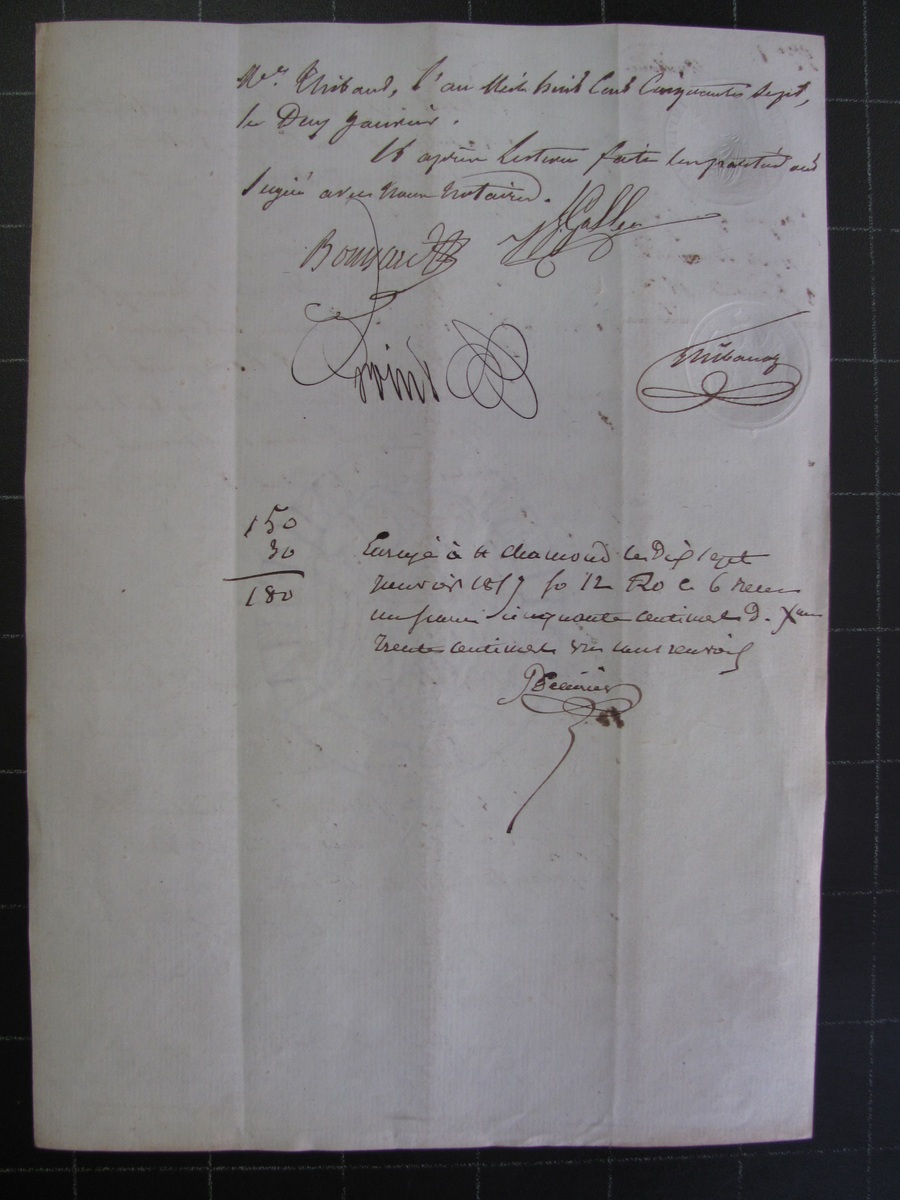 Mtre Thibaud, l'an Mil huit Cent Cinquante sept,
le Deux Janvier.
Et après lecture faite les parties ont
Signé avec Nous Notaires.
Bonnard
Thibaud
150
30
180
Enregé à St chamond le Dix sept
janvier 1857 fo 12 Ro c 6 reçu
un franc cinquante centimes D. Xme
trente centimes sans renvoi